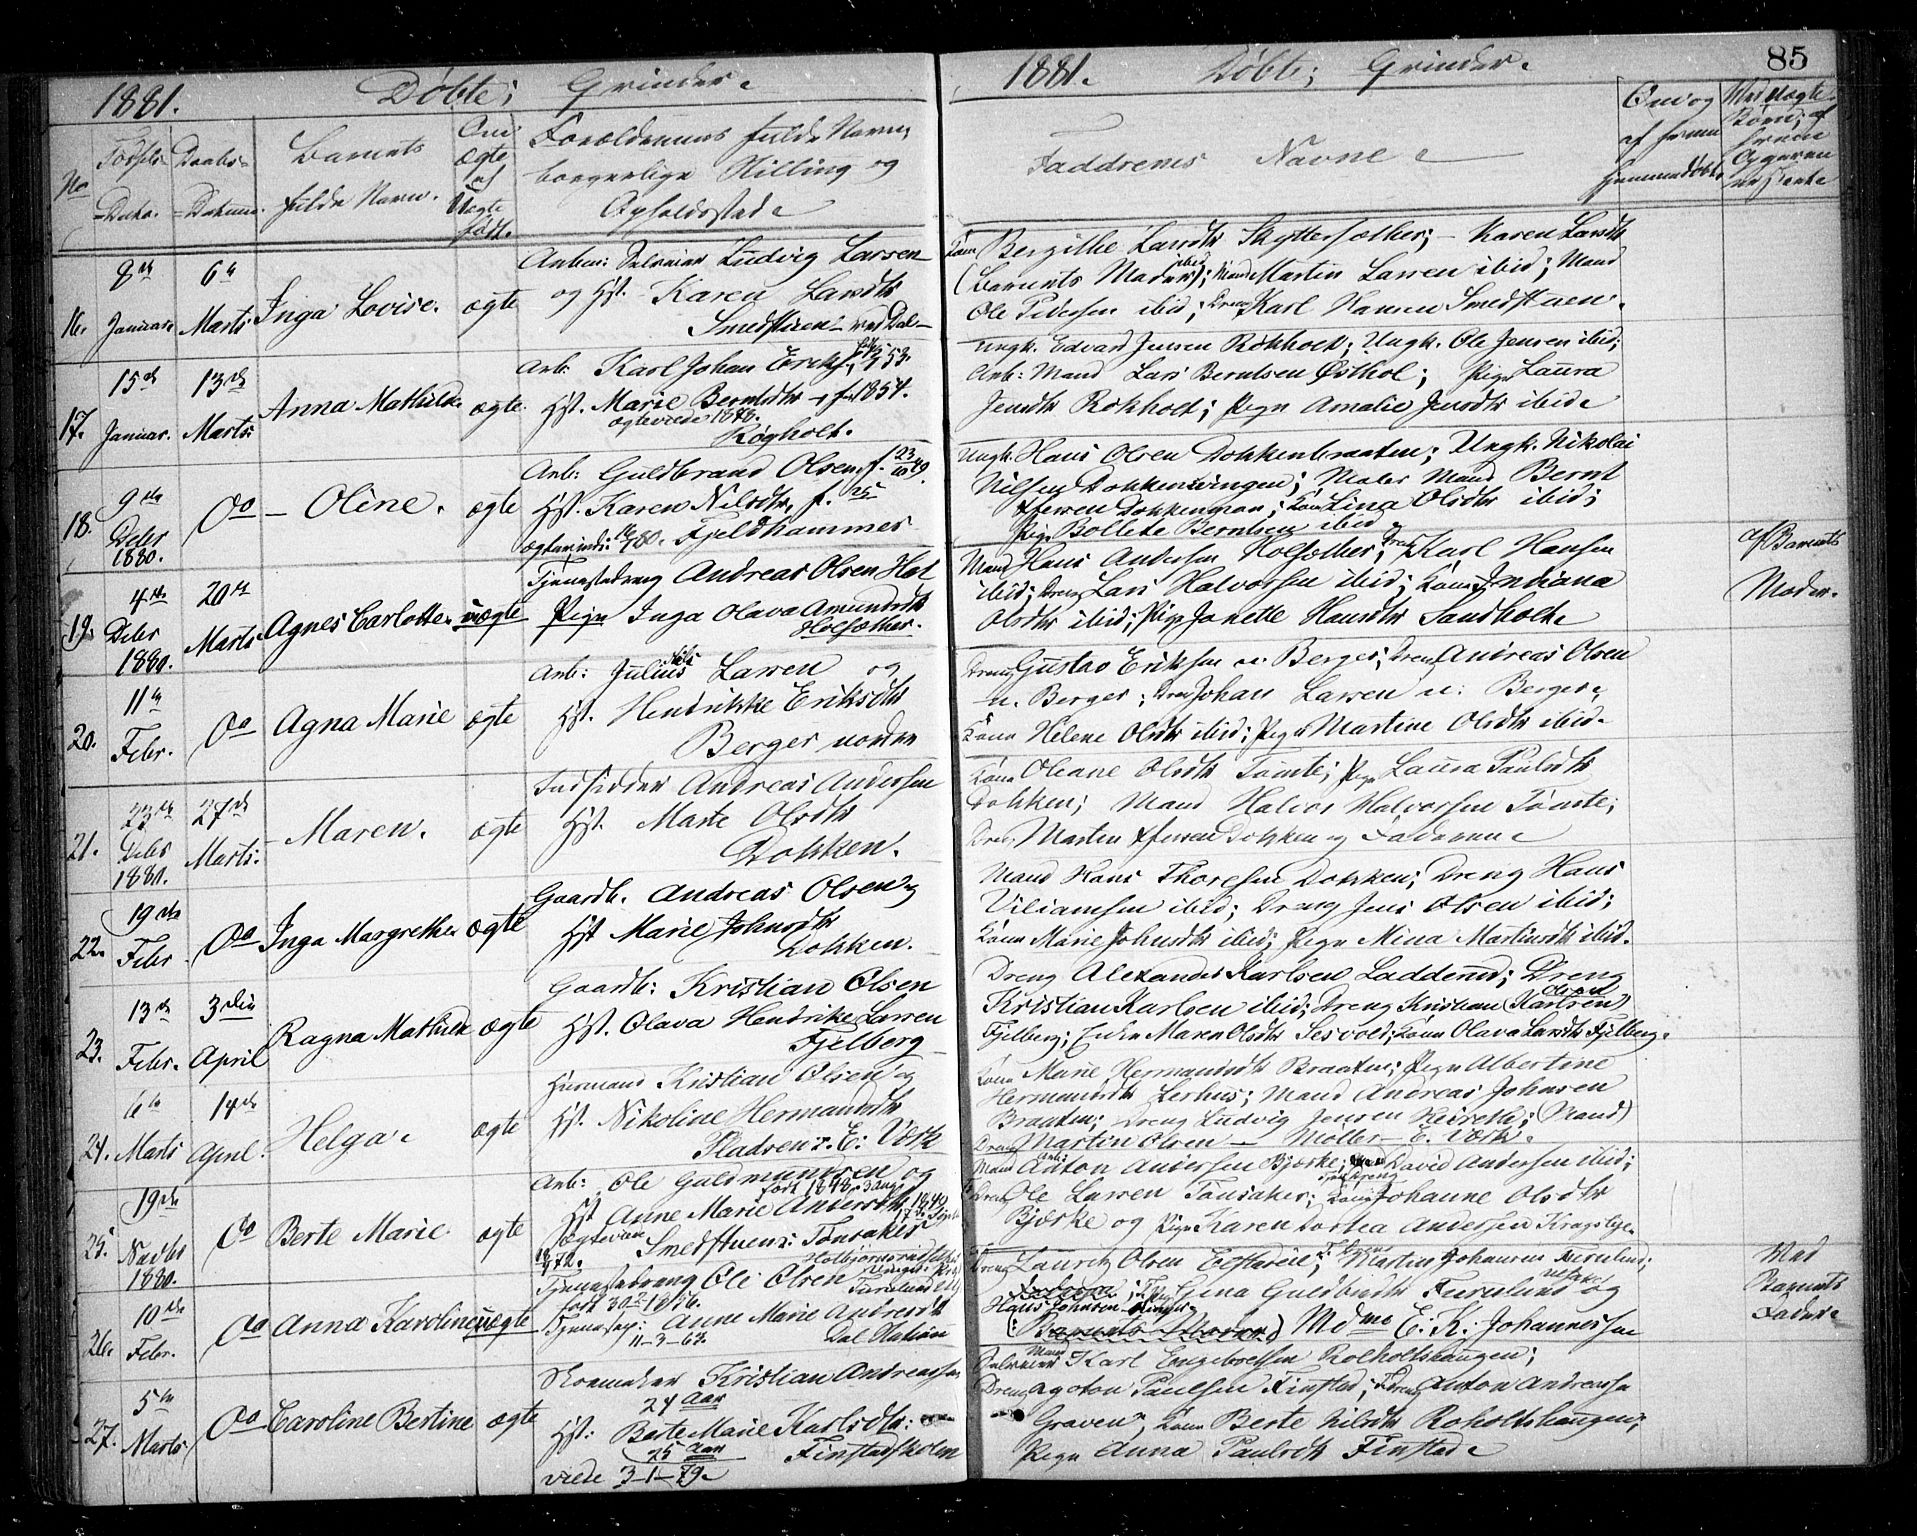 1881.
Døbte; Grinder.
No
Fødsels- Dato.
Daabs- Datum.
Barnets fulde Navn.
Om ægte el Uægte født.
Forældrenes fulde Navn,
borgerlige Stilling og
Opholdssted
16.
8de Januar
6te Marts
Inga Lovise.
ægte
Arbm: Selveier Ludvig Larsen
og Hst. Karen Larsdtr
Smedstuen
17.
15de Januar.
13de Marts.
Anna Mathilde
ægte.
Arb: Karl Johan Eriks. 53.
Hst. Marie Berntsdtr f. 1854.
ægteviede 1878.
Røgholt.
18.
9de Debr 1880.
Do
Oline.
ægte
Arb: Guldbrand Olsen, f. 23/10 49.
Hst. Karen Nilsdtr, f. 25
Fjeldhammer
19.
4de Debr 1880.
20de Marts
Agnes Carlotte.
uægte
Tjenestedreng Andreas Olsen Hol
Pige Inga Olava Amundsdtr
Holsæther.
20.
11te Febr.
Do
Agna Marie
ægte
Arb: Julius Larsen og
Hst. Hendrikke Eriksdtr
Berger nordre
21.
23de Debr 1880.
27de Marts.
Maren.
ægte
Indsidder Andreas Andersen
Hst. Marte Olsdtr
Dokken.
22.
19de Febr.
Do
Inga Margrethe
ægte
Gaardb. Andreas Olsen og
Hst Marie Johnsdtr
Dokken.
23.
13de Febr.
3die April
Ragna Mathilde
ægte
Gaardb: Kristian Olsen
Hst. Olava Hendrikke Larsen
Fjelberg
24.
6te Marts
14de April.
Helga.
ægte
Huusmand Kristian Olsen og
Hst. Nikoline Hermansdtr
Pladsen E: Værk
25.
19de 1880.
Do
Berte Marie
ægte
Arb: Ole Guldmundsen og
født 1848, 3 aug
Hst Anne Marie Andersdtr, 1849
Smedstuen
26.
10de Febr.
Do
Anna Karoline
uægte
Tjenestedreng Ole Olsen Furulund
født 30 1856.
Tjenestep: Anne Marie Andersdtr
11-3-62.
27.
5te Marts
Do
Caroline Bertine
ægte
Skomaker Kristian Andreassen
24 Aar
Hst: Berte Marie Karlsdtr.
25 Aar Finstadskolen
viede 3-1-79.
1881. Døbte; Grinder.
85
Faddrenes Navne
Om og af hvem hjemmedøbt
Ved Uægte Børn; af hvem Opgaven er skeet
Kone Bergithe Larsdtr Skyttersæther; Karen Larsdtr
(Barnets Moder) ibid; Mand Martin Larsen ibid; Mand
Ole Pedersen ibid; Dreng Karl Hansen Smedstuen.
Ungk. Edvard Jensen Røkholt; Ungk. Ole Jensen ibid;
Arb: Mand Lars Berntsen Østhol; Pige Laura
Jensdtr Røkholt; Pige Amalie Jensdtr ibid
Ungk. Hans Olsen Dokkenbraaten; Ungk. Nikolai
Nilsen Dokkenvingen; Maler Mand Bernt
Iversen Dokkenmoen; Kone Lina Olsdtr ibid;
Pige Bollete Berntsen ibid
Mand Hans Andersen Holsæther; Dreng Karl Hansen
ibid; Dreng Lars Halvorsen ibid; Kone Indiana
Olsdtr ibid; Pige Janette Hansdtr Sandholt
af Barnets Moder.
Dreng Gustav Eriksen n. Berger; Dreng Andreas Olsen
n. Berger; Dreng Johan Larsen n: Berger
Kone Helene Olsdtr ibid; Pige Martine Olsdtr ibid.
Kone Oleane Olsdtr Tomte; Pige Laura Paulsdtr
Dokken; Mand Halvor Halvorsen Tomte;
Dreng Martin Iversen Dokken og Faderen
Mand Hans Thoresen Dokken; Dreng Hans
Viliamsen ibid; Dreng Jens Olsen ibid;
Kone Marie Johnsdtr ibid; Pige Mina Martinsdtr ibid.
Dreng Alexander Karlsen Ladderud; Dreng
Kristian Karlsen ibid; Dreng Kristian (Karlsen) Olsen
Fjelberg; Enke Maren Olsdtr Sesvold; Kone Olava Larsdtr Fjelberg.
Kone Marie Hermansdtr Braaten; Pige Albertine
Hermansdtr Lerhus; Mand Andreas Johnsen
Braaten; Dreng Ludvig Jensen; (Mand)
Dreng Martin Olsen - Møller - E. Værk.
Mand Anton Andersen Bjørke; David Andersen ibid;
Dreng Ole Larsen Tonsaker; Kone Johanne Olsdtr
Bjørke og Pige Karen Dortea Andersen
Dreng Lauritz Olsen; Martin Johansen
Gina Guldbrdsdtr Furulund og
Hans Johnsen
(: Barnets Fader) Mdme E. K. Johannessen
Ved Barnets Fader
Selveier Mand Karl Engebretsen Roholtshaugen;
Dreng Agoton Paulsen Finstad; Dreng Anton Andreassen
Graven; Kone Berte Nilsdtr Roholtshaugen;
Pige Anna Paulsdtr Finstad